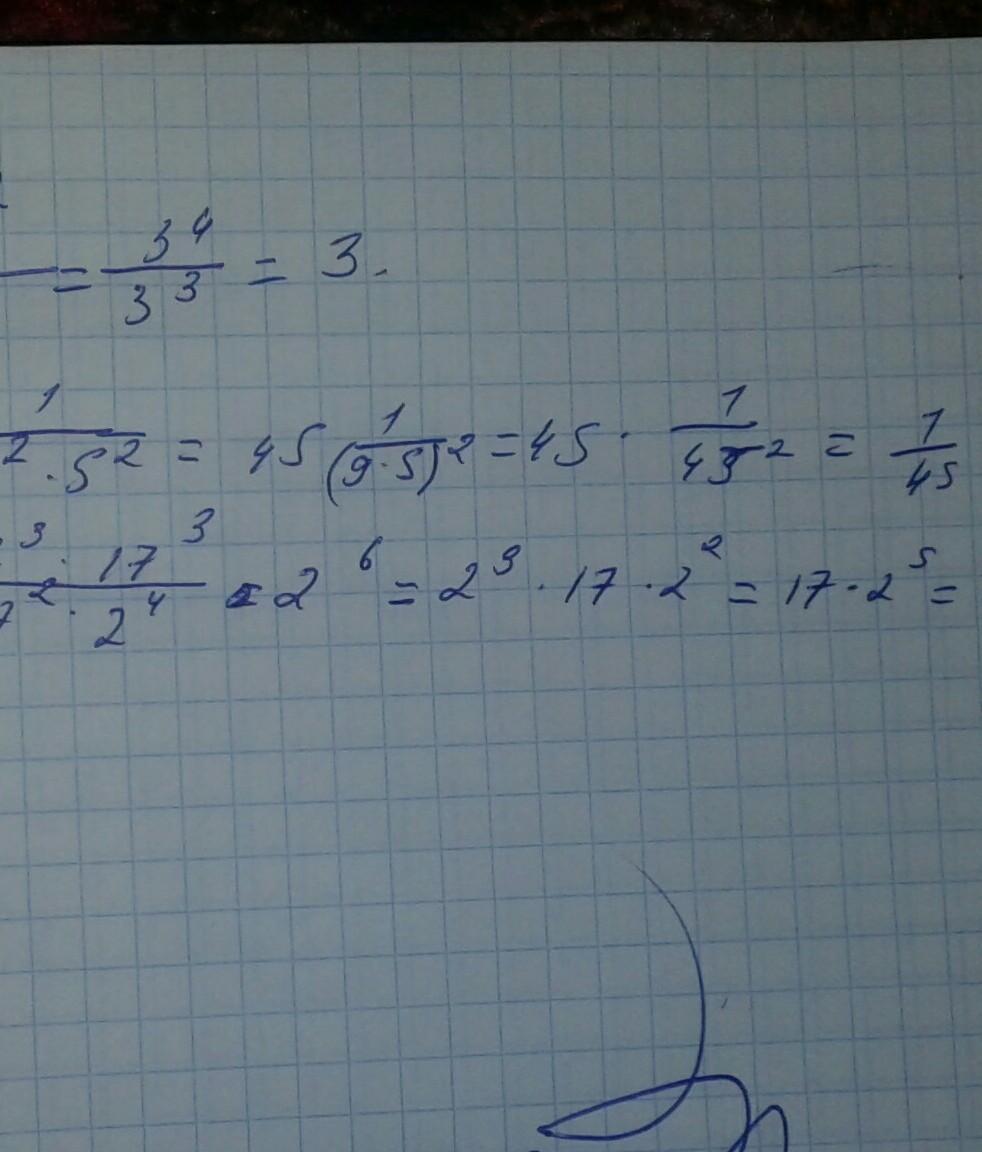 = 3⁴/3³ = 3.
1/(² · 5²) = 45 (1/(9·5))² = 45 · 1/45² = 1/45
³ · 17³/(7² · 2⁴) · 2⁶ = 2³ · 17 · 2² = 17 · 2⁵ =